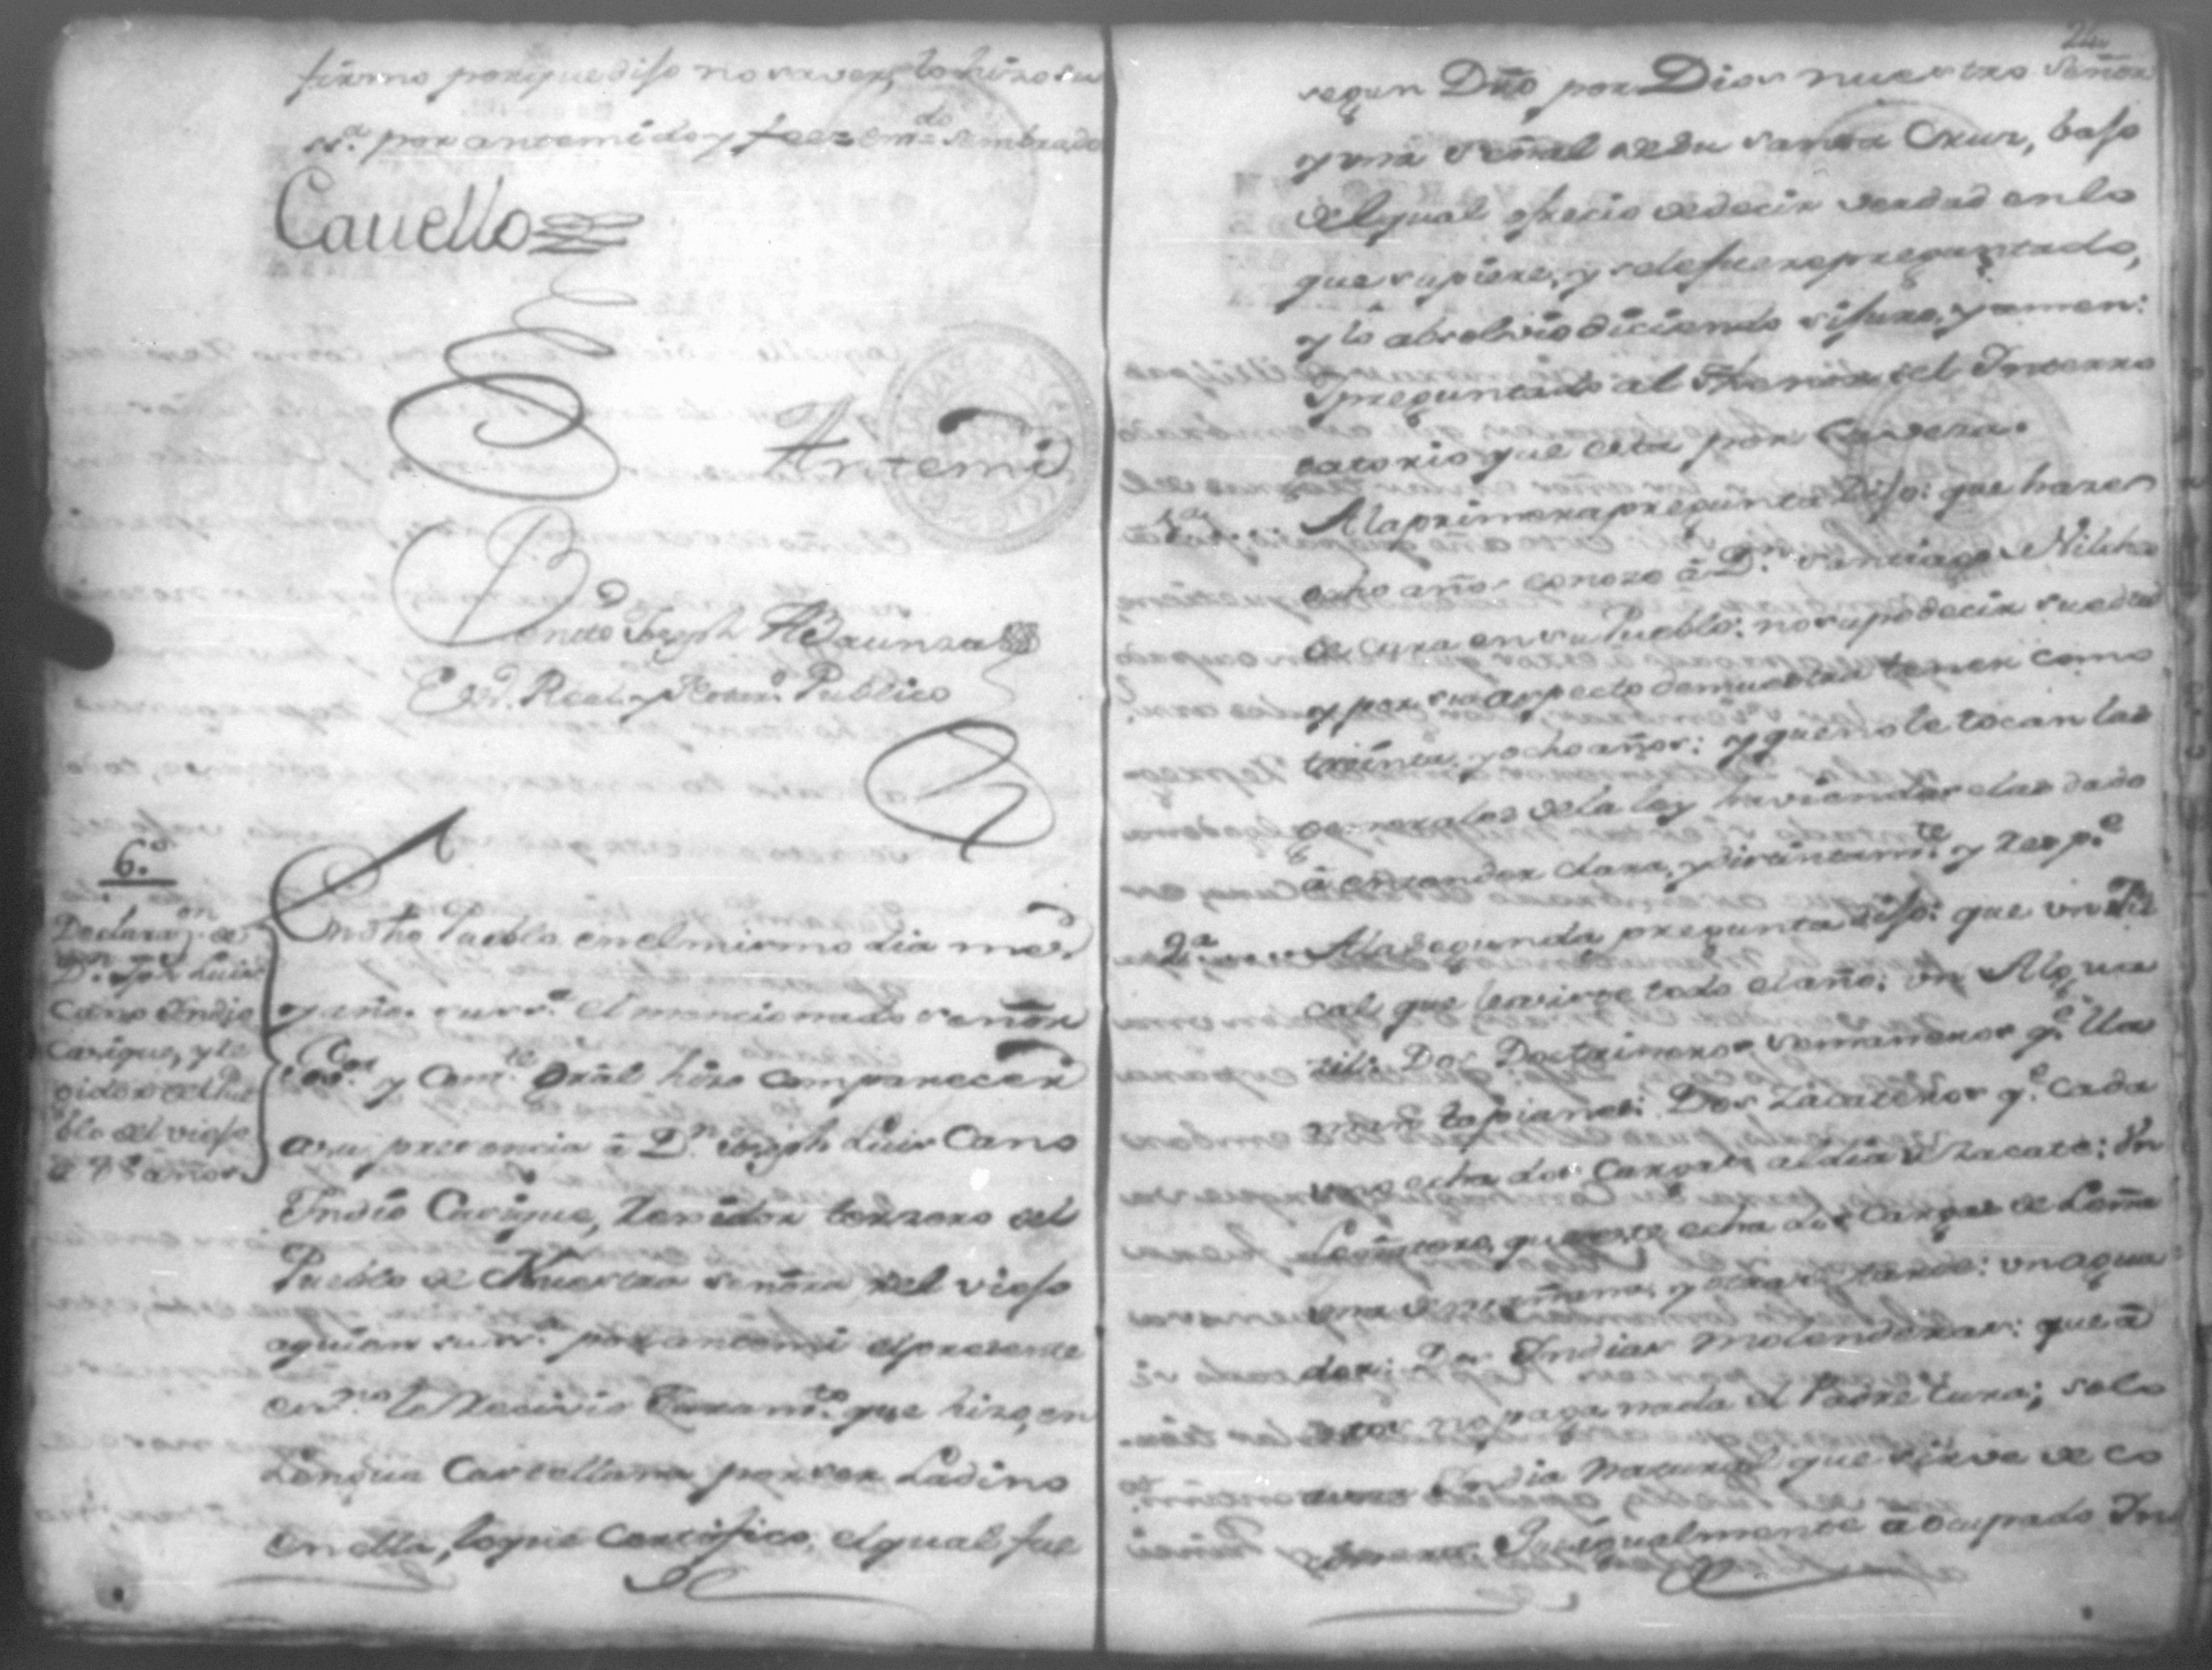 firmo porque dijo no saver, lo hizo su
ss.ª por antemi doy fee = emd.do sembrado
Cavello
Antemi
Benito Joseph
Esno. Real y Notar.º Publico
6.ª
Declaraz.on de
D.n Jph Luis
Cano Indio
Casique, y Re
gidor del Pue
blo del viejo
de 38 años
En dho Pueblo en el mismo dia mes,
y año. su ss.ª el mencionado señor
Gov.or y Com.te Gral hizo comparecer
a su presencia â D.n Joseph Luis Cano
Indio Casique, Rexidor terzero del
Pueblo de Nuestra señora del viejo
aquien su ss.ª por antemi el presente
esn.no le Recivio Juram.to que hizo, en
Lengua Castellana por ser Ladino
en ella, lo que Certifico, el qual fue
24
segun Dro por Dios nuestro Señor
y una señal de su santa Cruz, bajo
del qual ofrecio de decir verdad en lo
que supiere, y se le fuere preguntado,
y lo absolvio diciendo si juro, y amen:
Y preguntado al thenor del Interro
gatorio que esta por Caveza.
1.ª Ala primera pregunta Dijo: que hazen
ocho años conoze â D.n Santiago Nilcha
de cura en su Pueblo: no supo decir su edad
y por su aspecto demuestra tener como
treinta y ocho años: y que no le tocan las
generales de la ley haviendoselas dado
â entender clara, y distintam.te y resp.e
2.ª Ala segunda pregunta dijo: que un Fis
cal que le sirve todo el año: un Algua
zil: Dos Doctrineros semaneros q.e lla
man topianes: Dos Zacateros q.e cada
uno echa dos cargas al dia de zacate: Un
Leñatero, que este echa dos cargas de Leña
una de mañana, y otra de tarde: un agua
dor: Dos Indias molenderas: que â
estos no paga nada el Padre Cura; solo
a una India natural que sirve de co
sinera: Que igualmente â ocupado In